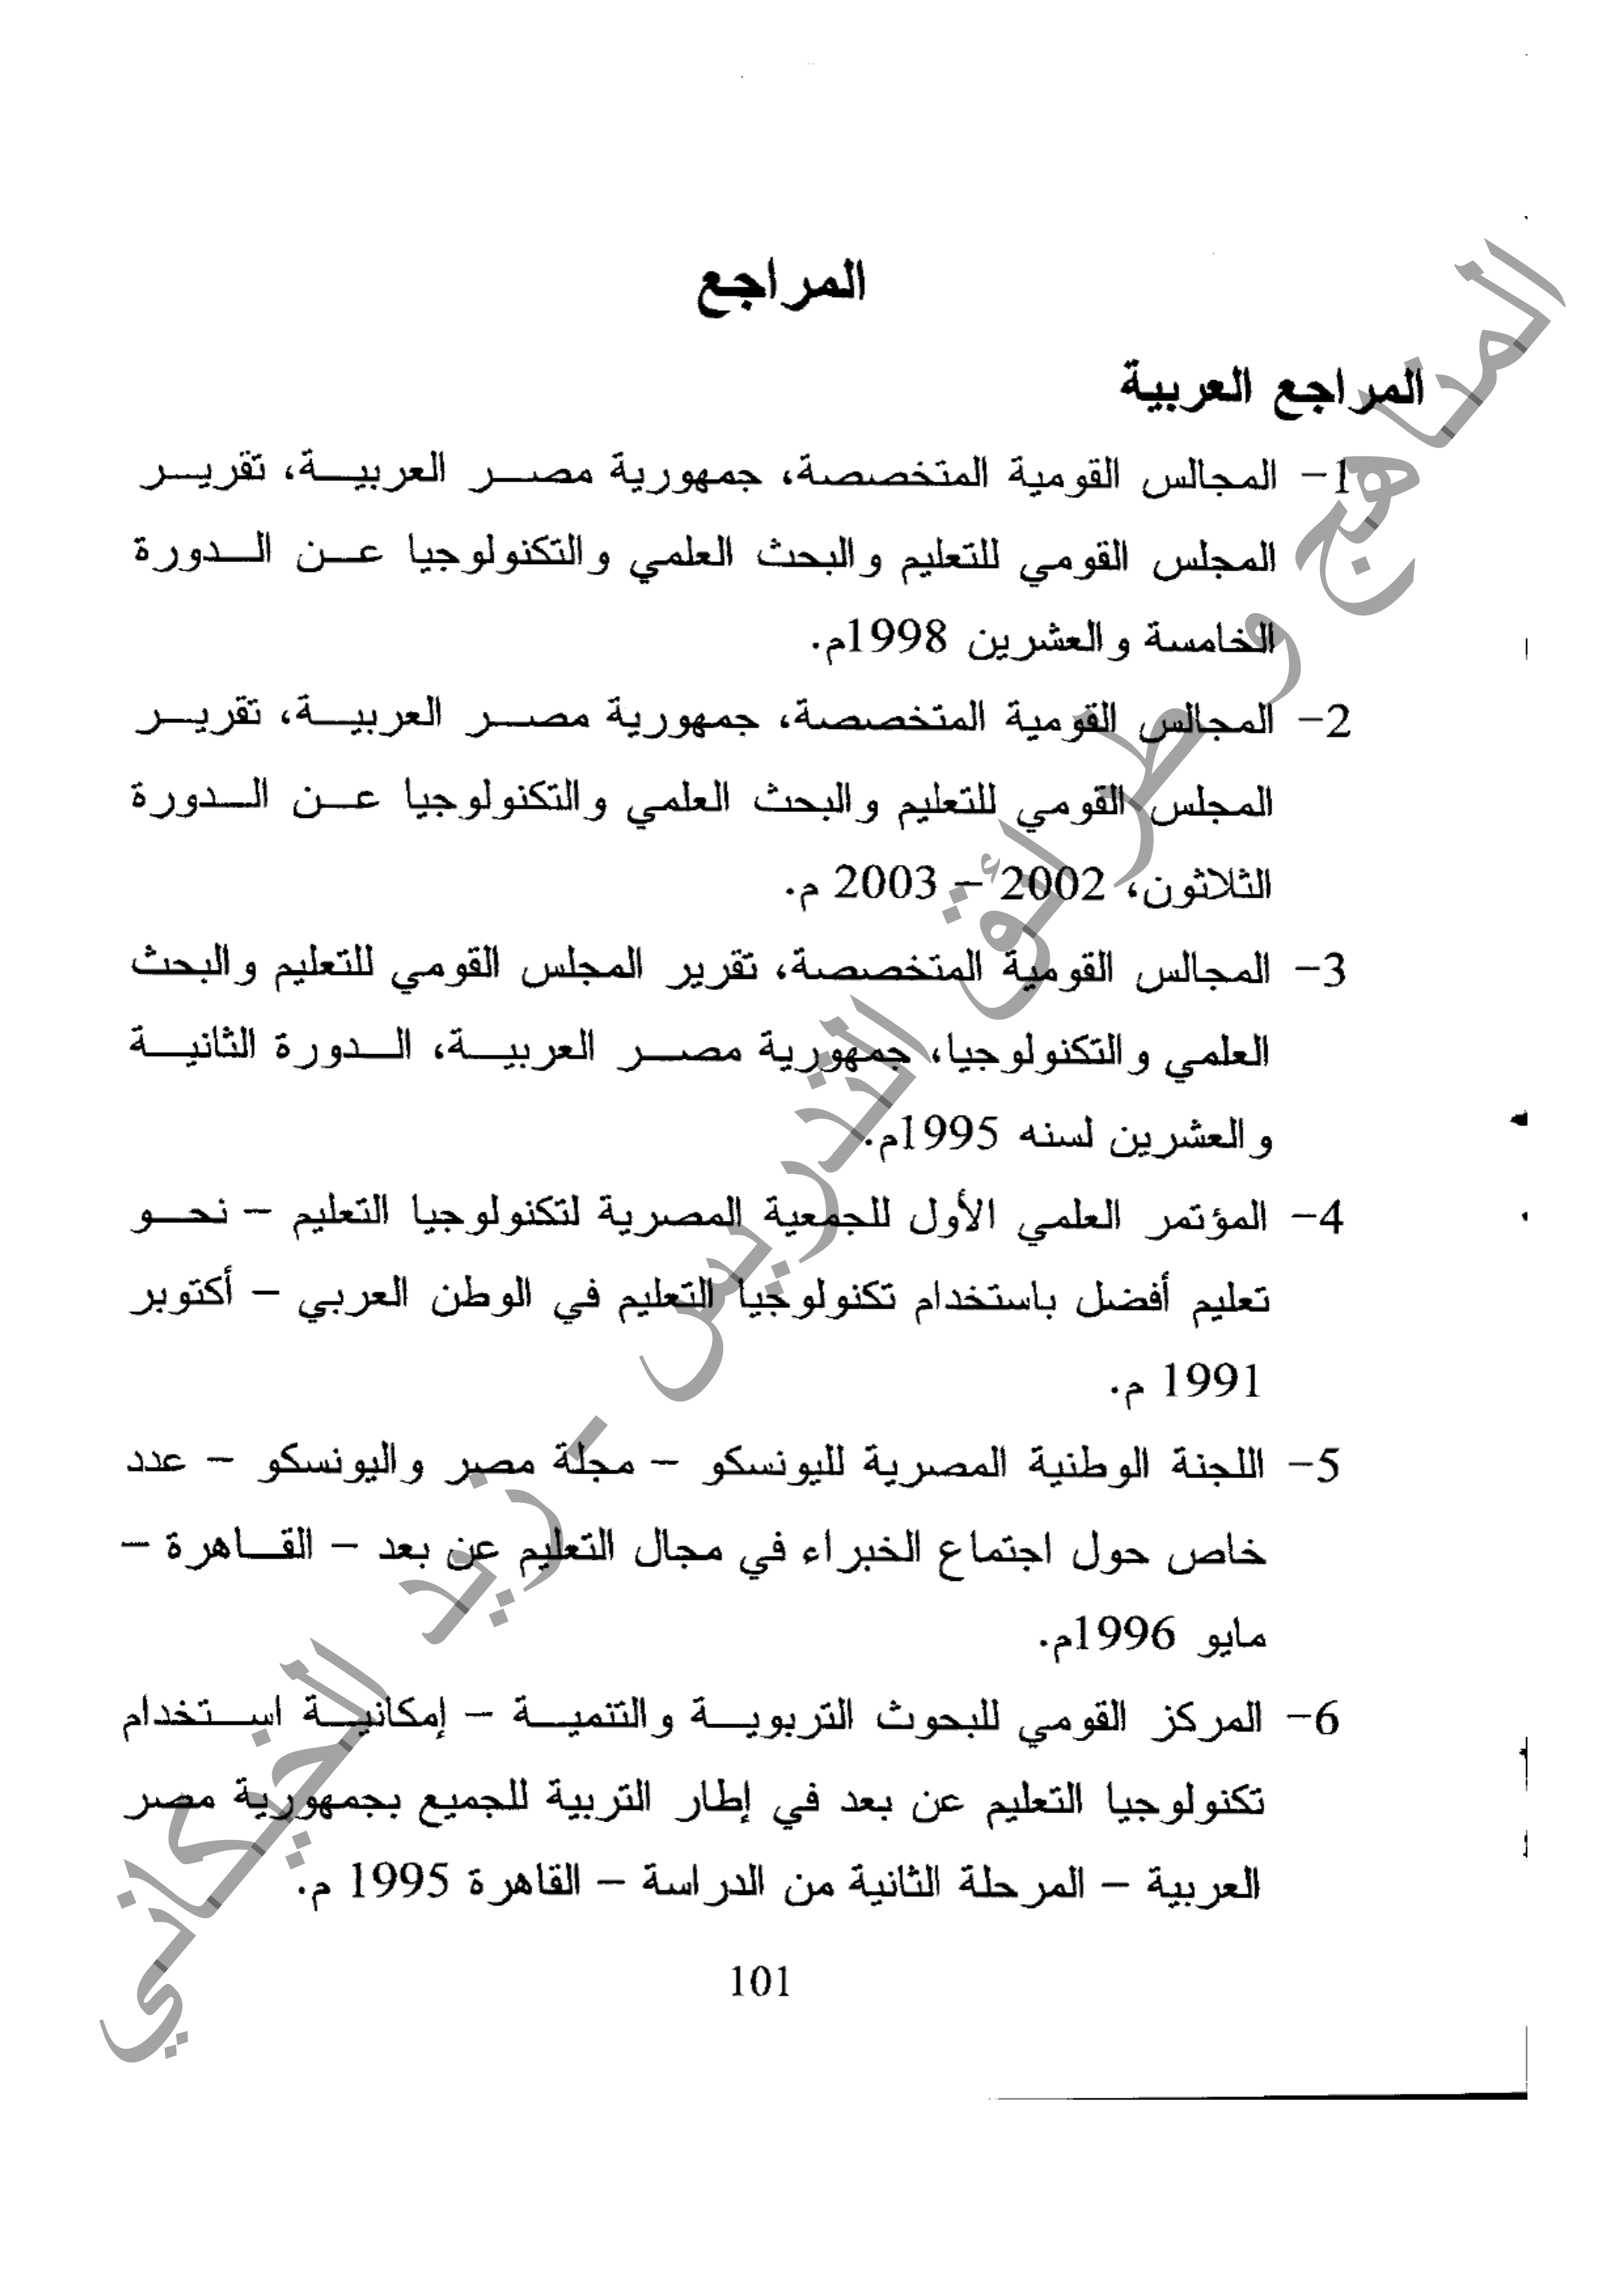 المراجع
المراجع العربية
1- المجالس القومية المتخصصة، جمهورية مصر العربية، تقرير
المجلس القومي للتعليم والبحث العلمي والتكنولوجيا عن الدورة
الخامسة والعشرين 1998م.
2- المجالس القومية المتخصصة، جمهورية مصر العربية، تقرير
المجلس القومي للتعليم والبحث العلمي والتكنولوجيا عن الدورة
الثلاثون، 2002 – 2003 م.
3- المجالس القومية المتخصصة، تقرير المجلس القومي للتعليم والبحث
العلمي والتكنولوجيا، جمهورية مصر العربية، الدورة الثانية
والعشرين لسنه 1995م.
4- المؤتمر العلمي الأول للجمعية المصرية لتكنولوجيا التعليم – نحو
تعليم أفضل باستخدام تكنولوجيا التعليم في الوطن العربي – أكتوبر
1991 م.
5- اللجنة الوطنية المصرية لليونسكو – مجلة مصر واليونسكو – عدد
خاص حول اجتماع الخبراء في مجال التعليم عن بعد – القاهرة –
مايو 1996م.
6- المركز القومي للبحوث التربوية والتنمية – إمكانية استخدام
تكنولوجيا التعليم عن بعد في إطار التربية للجميع بجمهورية مصر
العربية – المرحلة الثانية من الدراسة – القاهرة 1995 م.
101
المناهج وطرائق التدريس - زيد الخيكاني